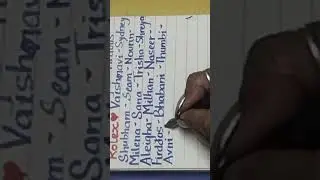 Rolex ❤ Vaishnavi - Sydney
Shubham - Seam - Nourin
Milena - Sana - Trisha - Shreya
Alesha - Milhan - Naseer -
Firdos - Bhabani - Thumbi -
Avni -